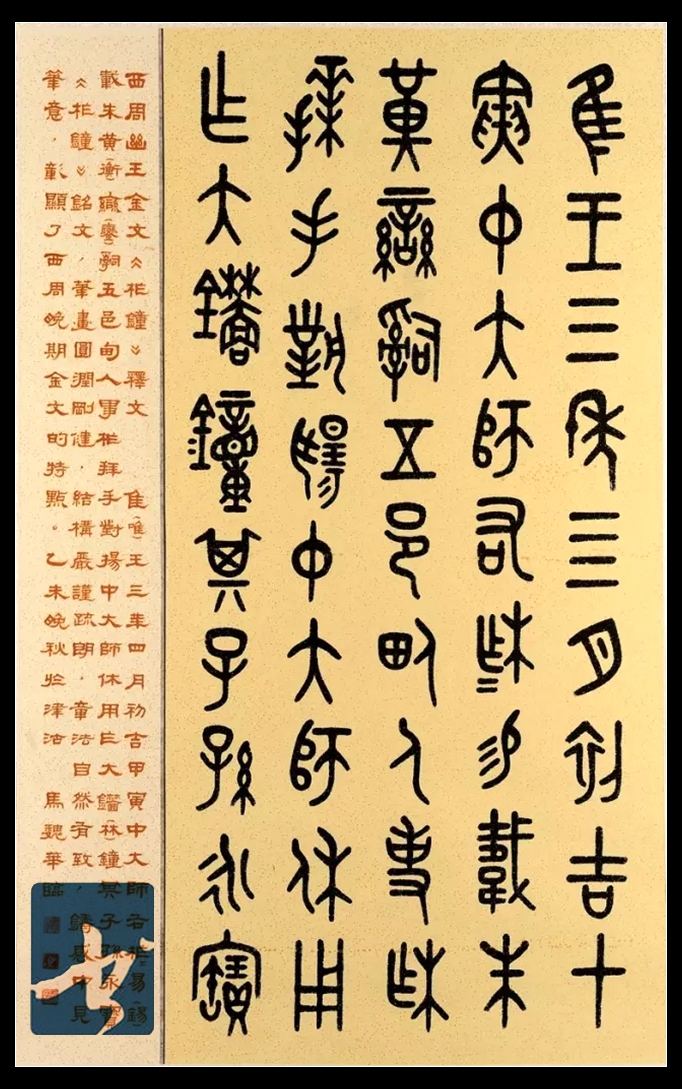 隹王三年亖月初吉十
寅中大師右柞易載朱
黃䜌𤔲五邑甸人事柞
拜手對揚中大師休用
乍大鑐鐘其子孫永寶
西周幽王金文《柞鐘》釋文 隹(唯)王三年四月初吉甲寅中大師右柞易(錫)
載朱黃(衡)䜌(鑾)𤔲五邑甸人事柞拜手對揚中大師休用乍大(林)鐘其子孫永寶
《柞鐘》銘文,筆畫圓潤剛健,結構嚴謹疏朗,章法自然有致,鑄感中見
筆意,彰顯了西周晚期金文的特點。乙未晚秋於津沽 馬聽華臨